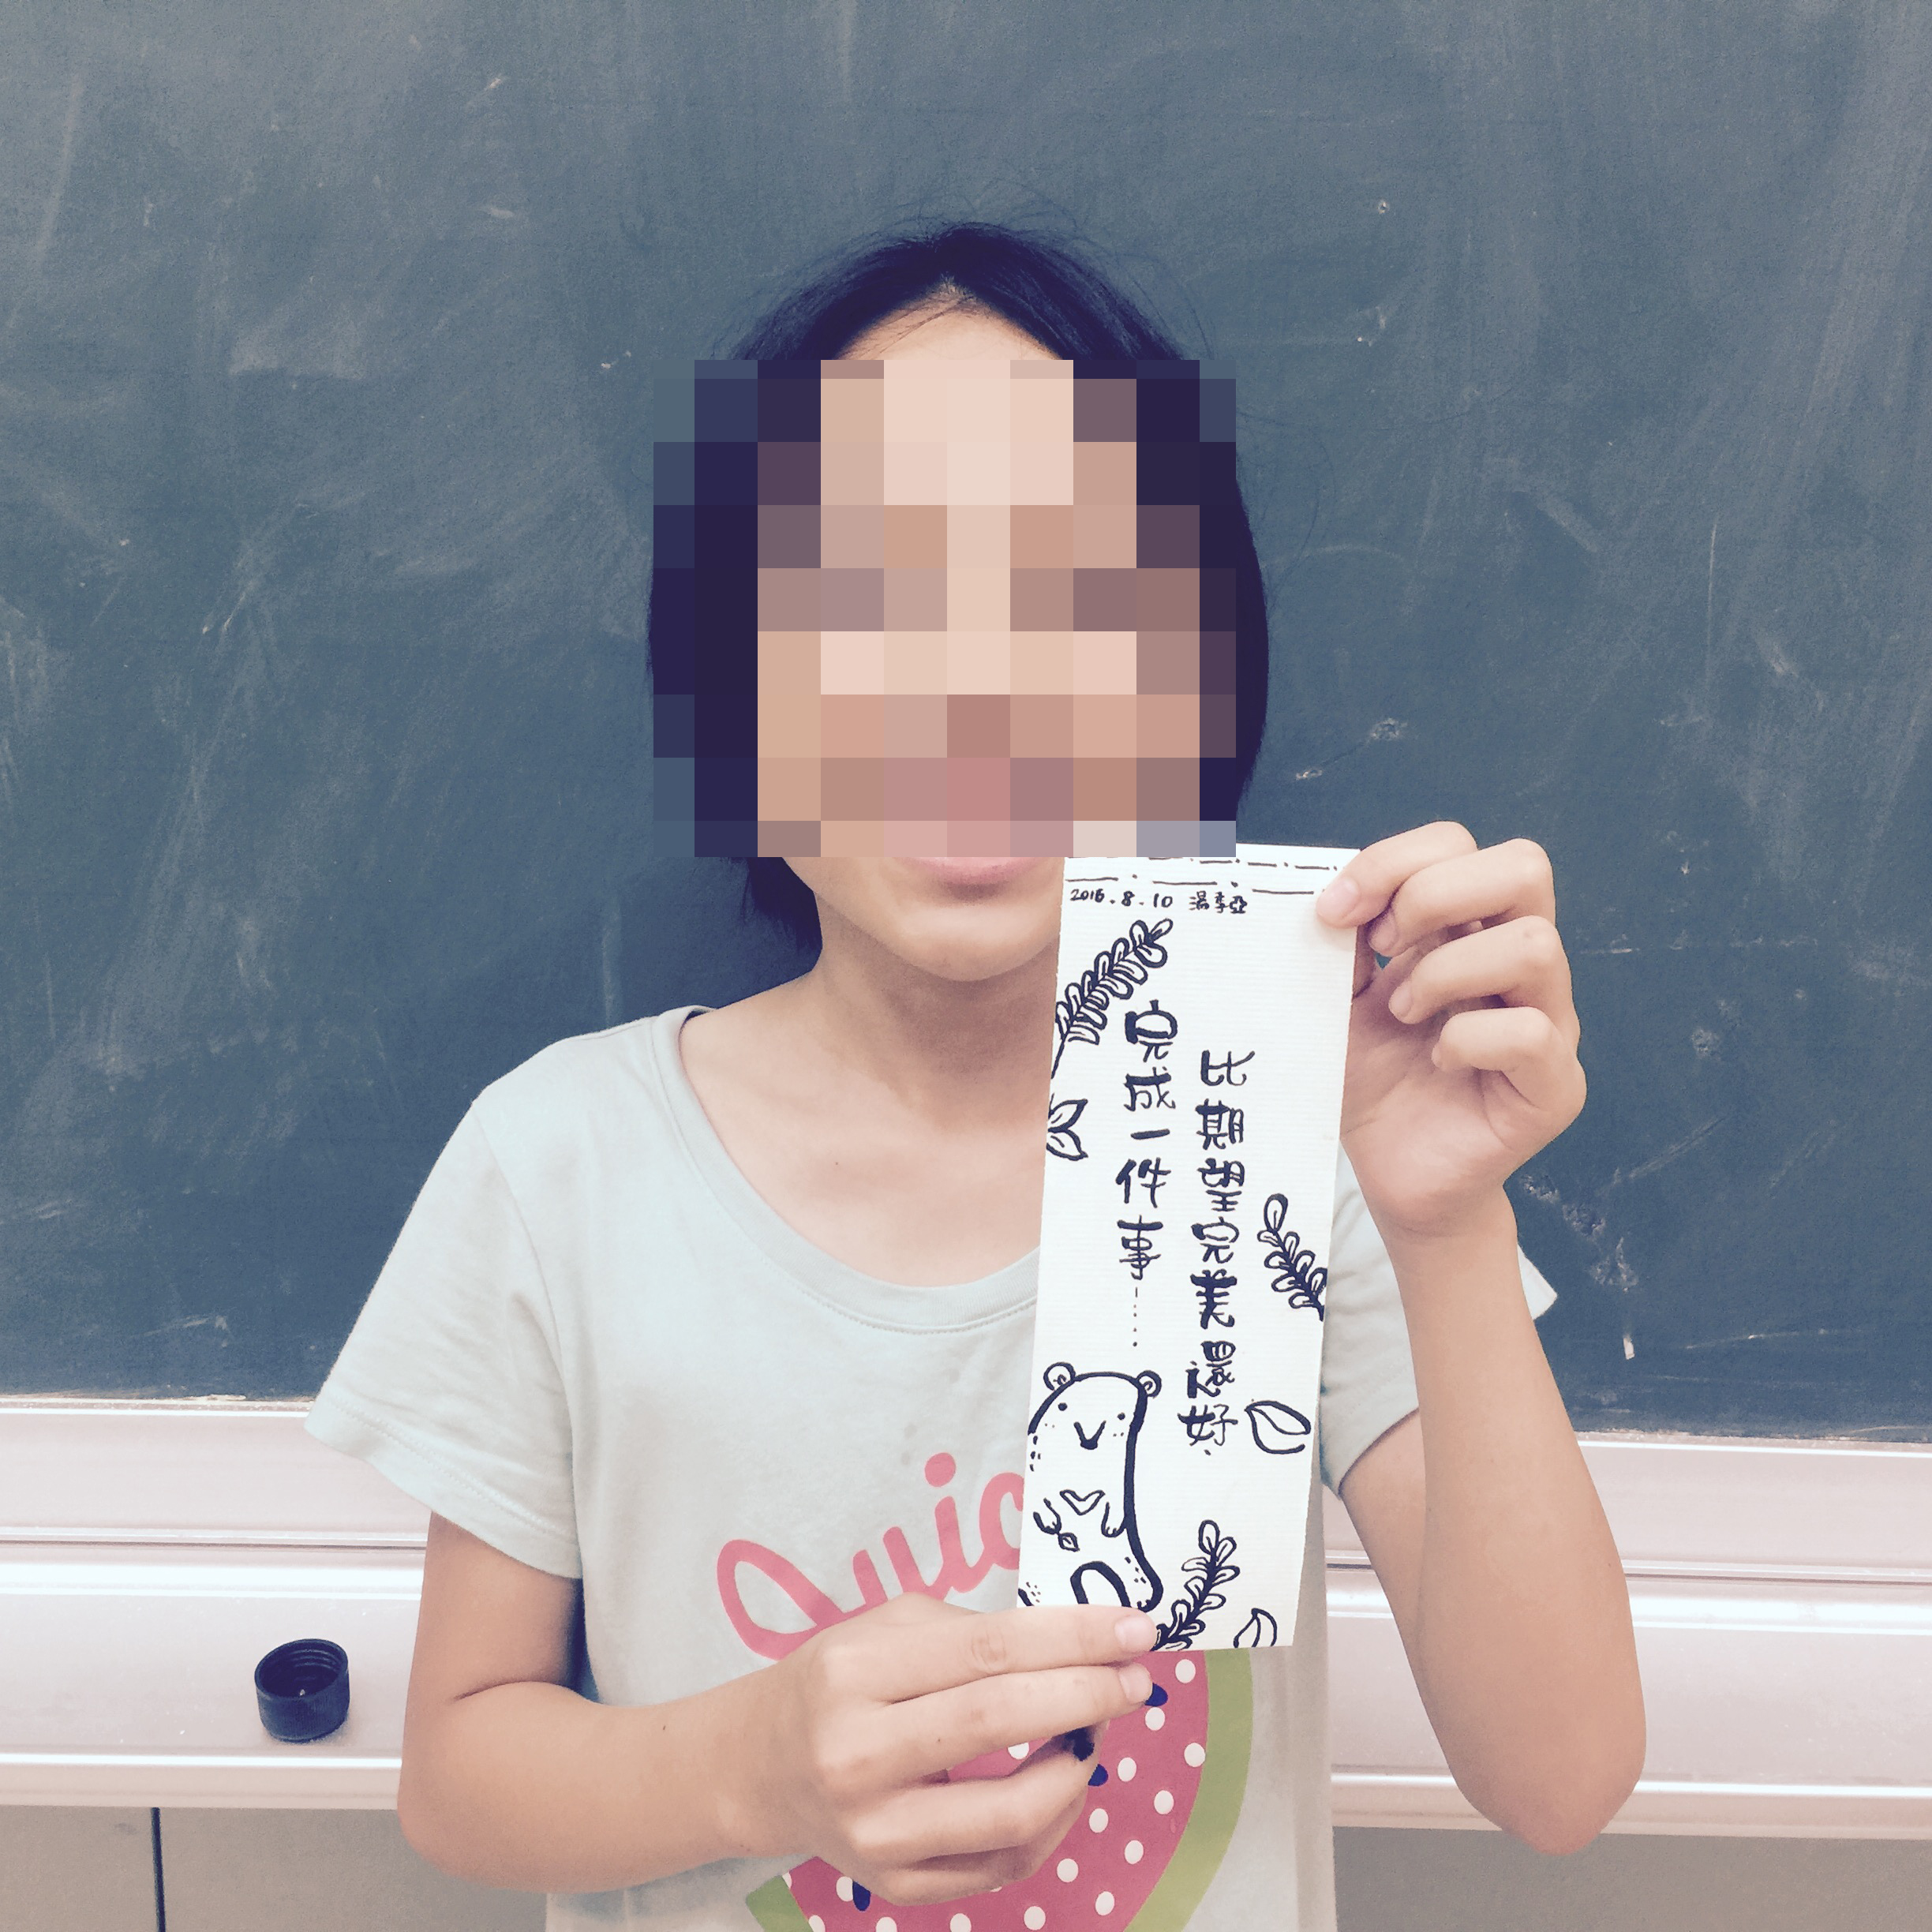 2016.8.10
完成一件事……
比期望完美還好.
Juic